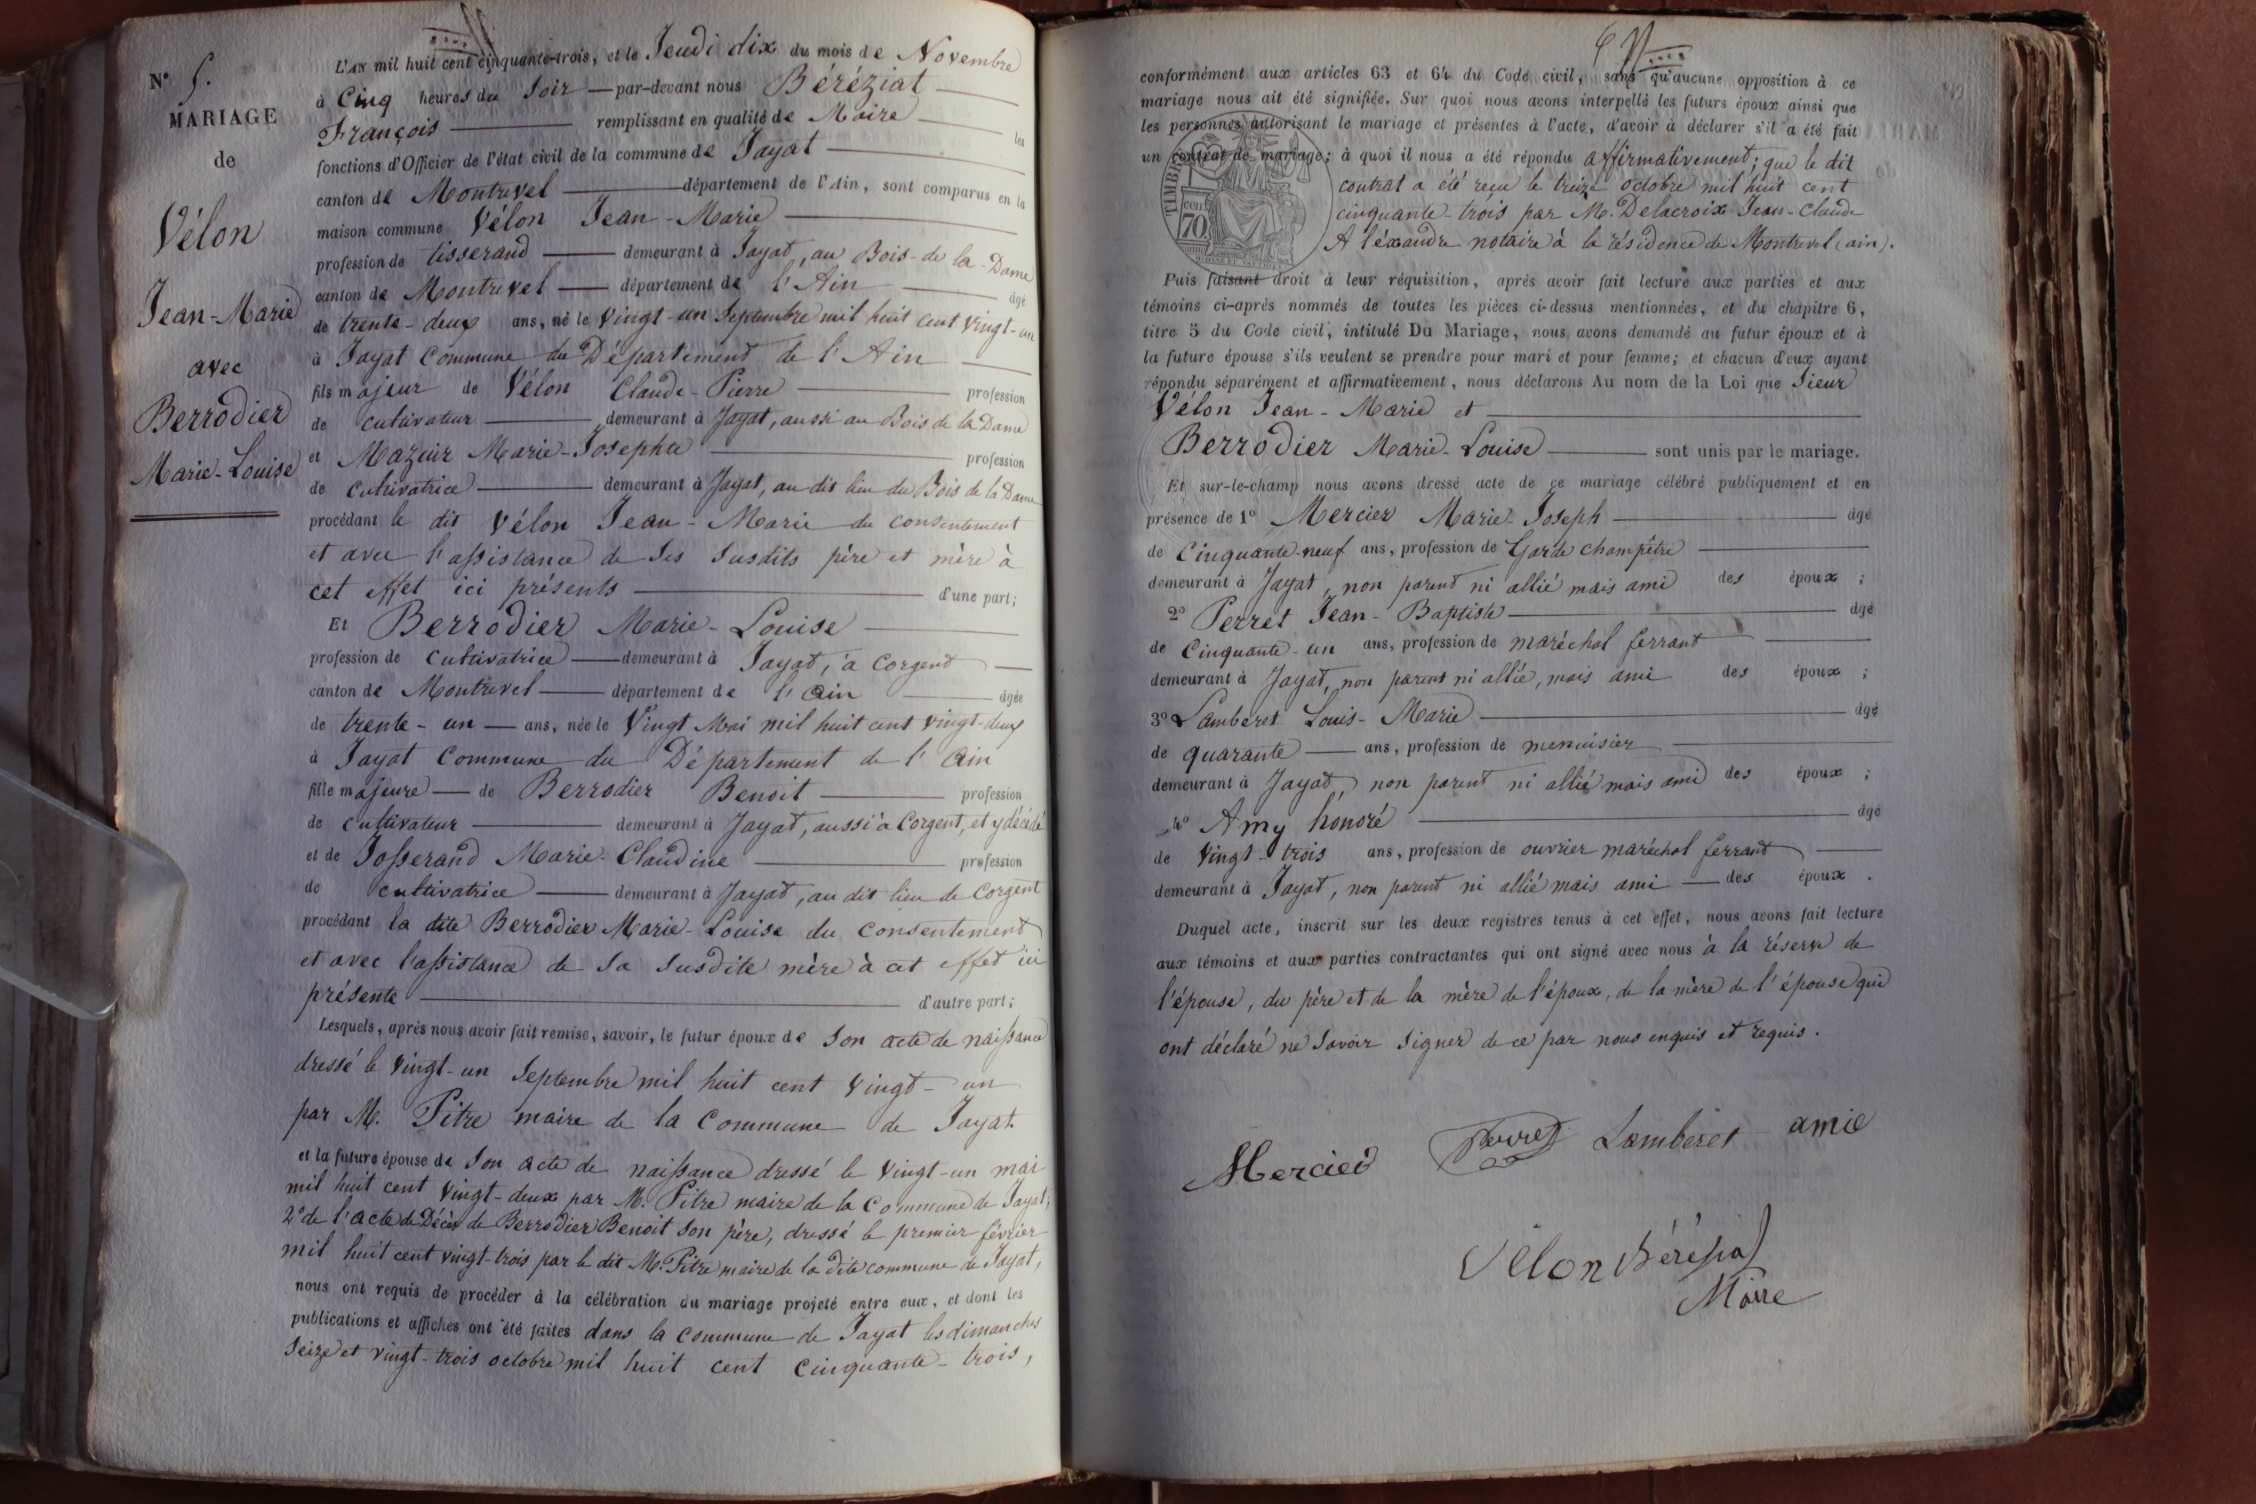 N° 5.
MARIAGE
de
Vélon
Jean-Marie
avec
Berrodier
Marie-Louise
L'AN mil huit cent cinquante-trois, et le Jeudi dix du mois de Novembre
à Cinq heures du Soir — par-devant nous Béréziat
François remplissant en qualité de Maire les
fonctions d'Officier de l'état civil de la commune de Jayat
canton de Montrevel département de l'Ain, sont comparus en la
maison commune Vélon Jean-Marie
profession de tisserand demeurant à Jayat, au Bois-de la-Dame
canton de Montrevel département de l'Ain âgé
de trente-deux ans, né le Vingt-un Septembre mil huit cent vingt-un
à Jayat Commune du Département de l'Ain
fils majeur de Vélon Claude-Pierre profession
de cultivateur demeurant à Jayat, aussi au Bois de la Dame
et Mazuir Marie-Josephte profession
de cultivatrice demeurant à Jayat, au dit lieu du Bois de la Dame
procédant le dit Vélon Jean-Marie du consentement
et avec l'assistance de ses susdits père et mère à
cet effet ici présents d'une part;
Et Berrodier Marie-Louise
profession de Cultivatrice demeurant à Jayat, à Corgent
canton de Montrevel département de l'Ain âgée
de trente-un ans, née le Vingt Mai mil huit cent vingt-deux
à Jayat Commune du Département de l'Ain
fille majeure de Berrodier Benoit profession
de cultivateur demeurant à Jayat, aussi à Corgent, et y décédé
et de Josserand Marie-Claudine profession
de cultivatrice demeurant à Jayat, au dit lieu de Corgent
procédant la dite Berrodier Marie-Louise du Consentement
et avec l'assistance de sa susdite mère à cet effet ici
présente d'autre part;
Lesquels, après nous avoir fait remise, savoir, le futur époux de son acte de naissance
dressé le vingt-un Septembre mil huit cent vingt-un
par M. Pitre maire de la Commune de Jayat
et la future épouse de son acte de naissance dressé le vingt-un mai
mil huit cent vingt-deux par M. Pitre maire de la Commune de Jayat;
2° de l'acte de Décès de Berrodier Benoit son père, dressé le premier février
mil huit cent vingt-trois par le dit M. Pitre maire de la dite commune de Jayat,
nous ont requis de procéder à la célébration du mariage projeté entre eux, et dont les
publications et affiches ont été faites dans la commune de Jayat les dimanches
Seize et vingt-trois octobre mil huit cent cinquante-trois,
conformément aux articles 63 et 64 du Code civil, sans qu'aucune opposition à ce
mariage nous ait été signifiée. Sur quoi nous avons interpellé les futurs époux ainsi que
les personnes autorisant le mariage et présentes à l'acte, d'avoir à déclarer s'il a été fait
un contrat de mariage; à quoi il nous a été répondu affirmativement; que le dit
contrat a été reçu le treize octobre mil huit cent
cinquante-trois par M. Delacroix Jean-Claude
Aléxandre notaire à la résidence de Montrevel (ain).
TIMBRE
cent
70
Puis faisant droit à leur réquisition, après avoir fait lecture aux parties et aux
témoins ci-après nommés de toutes les pièces ci-dessus mentionnées, et du chapitre 6,
titre 5 du Code civil, intitulé Du Mariage, nous avons demandé au futur époux et à
la future épouse s'ils veulent se prendre pour mari et pour femme; et chacun d'eux ayant
répondu séparément et affirmativement, nous déclarons Au nom de la Loi que Sieur
Vélon Jean-Marie et
Berrodier Marie-Louise sont unis par le mariage.
Et sur-le-champ nous avons dressé acte de ce mariage célébré publiquement et en
présence de 1° Mercier Marie-Joseph âgé
de Cinquante-neuf ans, profession de Garde champêtre
demeurant à Jayat, non parent ni allié mais ami des époux;
2° Perret Jean-Baptiste âgé
de Cinquante-un ans, profession de maréchal ferrant
demeurant à Jayat, non parent ni allié, mais ami des époux;
3° Lamberet Louis-Marie âgé
de quarante ans, profession de menuisier
demeurant à Jayat, non parent ni allié mais ami des époux;
4° Amy honoré âgé
de Vingt-trois ans, profession de ouvrier maréchal ferrant
demeurant à Jayat, non parent ni allié mais ami des époux.
Duquel acte, inscrit sur les deux registres tenus à cet effet, nous avons fait lecture
aux témoins et aux parties contractantes qui ont signé avec nous à la réserve de
l'épouse, du père et de la mère de l'époux, de la mère de l'épouse qui
ont déclaré ne savoir signer de ce par nous enquis et requis.
Mercier Perret Lamberet amie
Vélon Béréziat
Maire